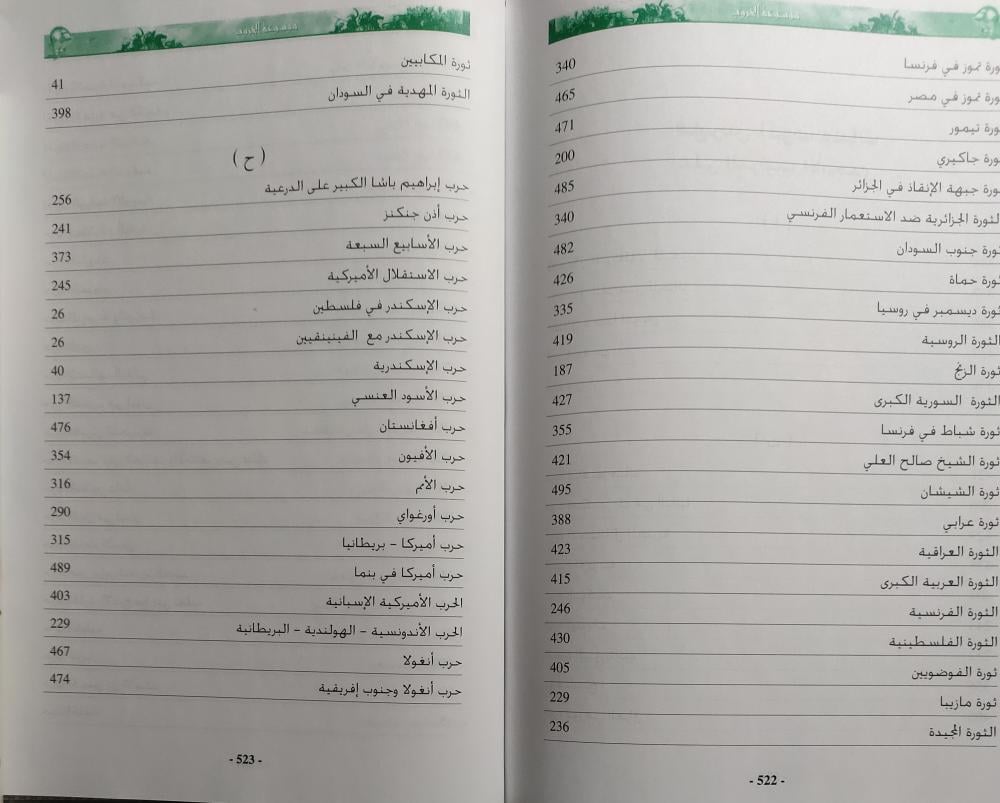 موسوعة الحروب
ثورة تموز في فرنسا 340
ثورة تموز في مصر 465
ثورة تيمور 471
ثورة جاكيري 200
ثورة جبهة الإنقاذ في الجزائر 485
الثورة الجزائرية ضد الاستعمار الفرنسي 340
ثورة جنوب السودان 482
ثورة حماة 426
ثورة ديسمبر في روسيا 335
الثورة الروسية 419
ثورة الزنج 187
الثورة السورية الكبرى 427
ثورة شباط في فرنسا 355
ثورة الشيخ صالح العلي 421
ثورة الشيشان 495
ثورة عرابي 388
الثورة العراقية 423
الثورة العربية الكبرى 415
الثورة الفرنسية 246
الثورة الفلسطينية 430
ثورة الفوضويين 405
ثورة مازيبا 229
الثورة المجيدة 236
- 522 -
موسوعة الحروب
ثورة المكابيين 41
الثورة المهدية في السودان 398
( ح )
حرب إبراهيم باشا الكبير على الدرعية 256
حرب أذن جنكنز 241
حرب الأسابيع السبعة 373
حرب الاستقلال الأميركية 245
حرب الإسكندر في فلسطين 26
حرب الإسكندر مع الفينيقيين 26
حرب الإسكندرية 40
حرب الأسود العنسي 137
حرب أفغانستان 476
حرب الأفيون 354
حرب الأمم 316
حرب أورغواي 290
حرب أميركا - بريطانيا 315
حرب أميركا في بنما 489
الحرب الأميركية الإسبانية 403
الحرب الأندونسية - الهولندية - البريطانية 229
حرب أنغولا 467
حرب أنغولا وجنوب إفريقية 474
- 523 -